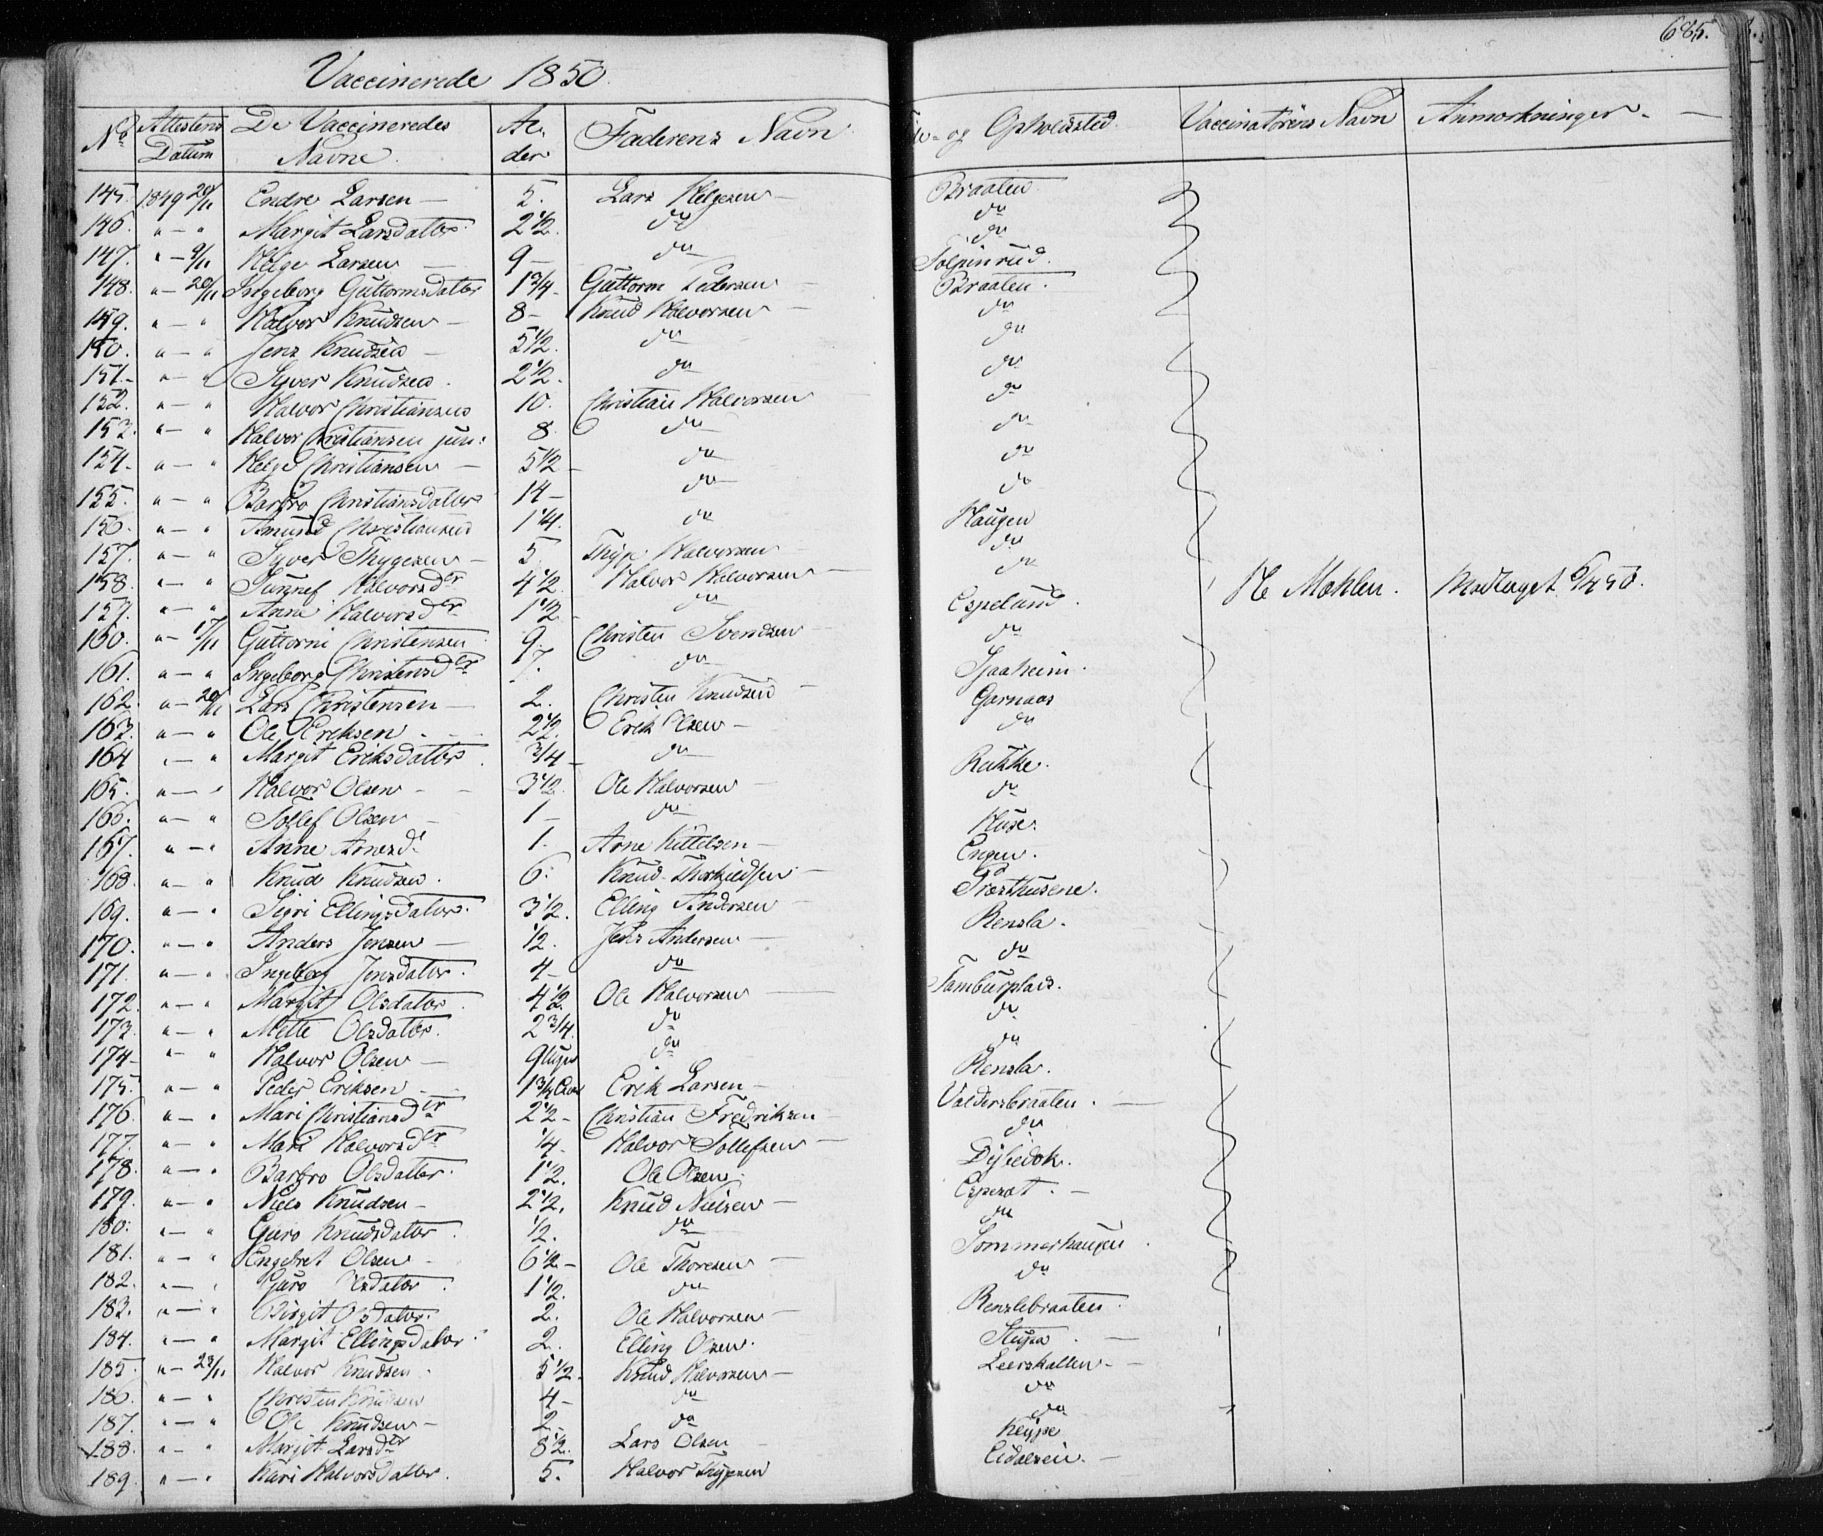 685.
Vaccinerede 1850.
No Attestens Datum De Vaccineredes Navne. Alder Faderens Navn og Opholdsted. Vaccinatörens Navn Anmærkninger.
145. 1849 20/11 Endre Larsen 5. Lars Helgesen Braaten.
146. " — " Margit Larsdatter 2 1/2. do do
147. " — 9/11 Helge Larsen 9 — do do
148. " — 20/11 Ingeborg Guttormsdatter 1 3/4 Guttorm Pedersen
149. " — " Halvor Knudsen 8 — Knud Halvorsen Braaten.
150. " — " Jens Knudsen 5 1/2. do do
151. " — " Syver Knudsen. 2 1/2. do do
152. " — " Halvor Christiansen 10. Christian Halvorsen do
153. " — " Halvor Christiansen jun: 8 do do
154. " — " Helge Christiansen 5 1/2 do do
155. " — " Barbro Christiansdatter 14 — do do
156. " — " Amund Christiansen 1 1/4. do do
157. " — " Syver Thygesen 5 Halvorsen Haugen
158. " — " Gunnef Halvorsdr 4 1/2 Halvor Halvorsen do
157. " — " Anne Halvorsdr 1 1/2 do do
H Mæhlen. Modtaget
160. " — 17/11 Guttorm Christensen 9. Christen Svendsen Espelund.
161. " — " Ingeborg Christensdr 7. do do
162. " — 20/11 Lars Christensen 2. Christen Knudsen Sjaaheim.
163. " — " Ole Eriksen. 2 1/2. Erik Olsen Garnaas
164 " — " Margit Eriksdatter 3/4 do do
165. " — " Halvor Olsen 3 1/2. Ole Halvorsen Rukke.
166. " — " Tollef Olsen 1 — do do
167. " — " Anne Arnesd. 1. Arne Kittelsen Huse.
168 " — " Knud Knudsen. 6. Knud Engen.
169. " — " Sigri Ellingsdatter. 3 1/2. Elling Andersen Præsthusene.
170. " — " Anders Jensen 1/2. Jens Andersen Rensla.
171. " — " Ingeborg Jensdatter. 4 — do do
172. " — " Margit Olsdatter. 4 1/2. Ole Halvorsen Tamburplads.
173. " — " Mette Olsdatter. 2 3/4. do do
174 — " — " Halvor Olsen 9 Uger do do
175. " — " Peder Eriksen 1 3/4 Erik Larsen Rensla.
176. " — " Mari Christiansdr 2 1/2 — Christian Fredriksen Valdersbraaten.
177. " — " Mari Halvorsdr 1/4 Halvor Tollefsen do
178. " — " Barbro Olsdatter. 1 1/2. Ole Olsen.
179. " — " Niels Knudsen — 2 1/2. Knud Nielsen Espeset.
180. " — " Guro Knudsdatter. 1/2. do do
181. " — " Engebret Olsen 6 1/2 — Ole Thoresen Sommerhaugen
182. " — " Guro Olsdatter 1 1/2. do do
183. " — " Birgit Olsdatter. 2. Ole Halvorsen Renslebraaten.
184. " — " Margit Ellingsdatter 2. Elling Olsen.
185 " — 23/11 Halvor Knudsen. 5 1/2. Knud Halvorsen Leerskallen
186. " — " Christen Knudsen 4 — do do
187. " — " Ole Knudsen — 2. do do
188. " — " Margit Larsdr 8 1/2. Lars Olsen
189. " — " Kari Halvorsdatter. 5. Halvor